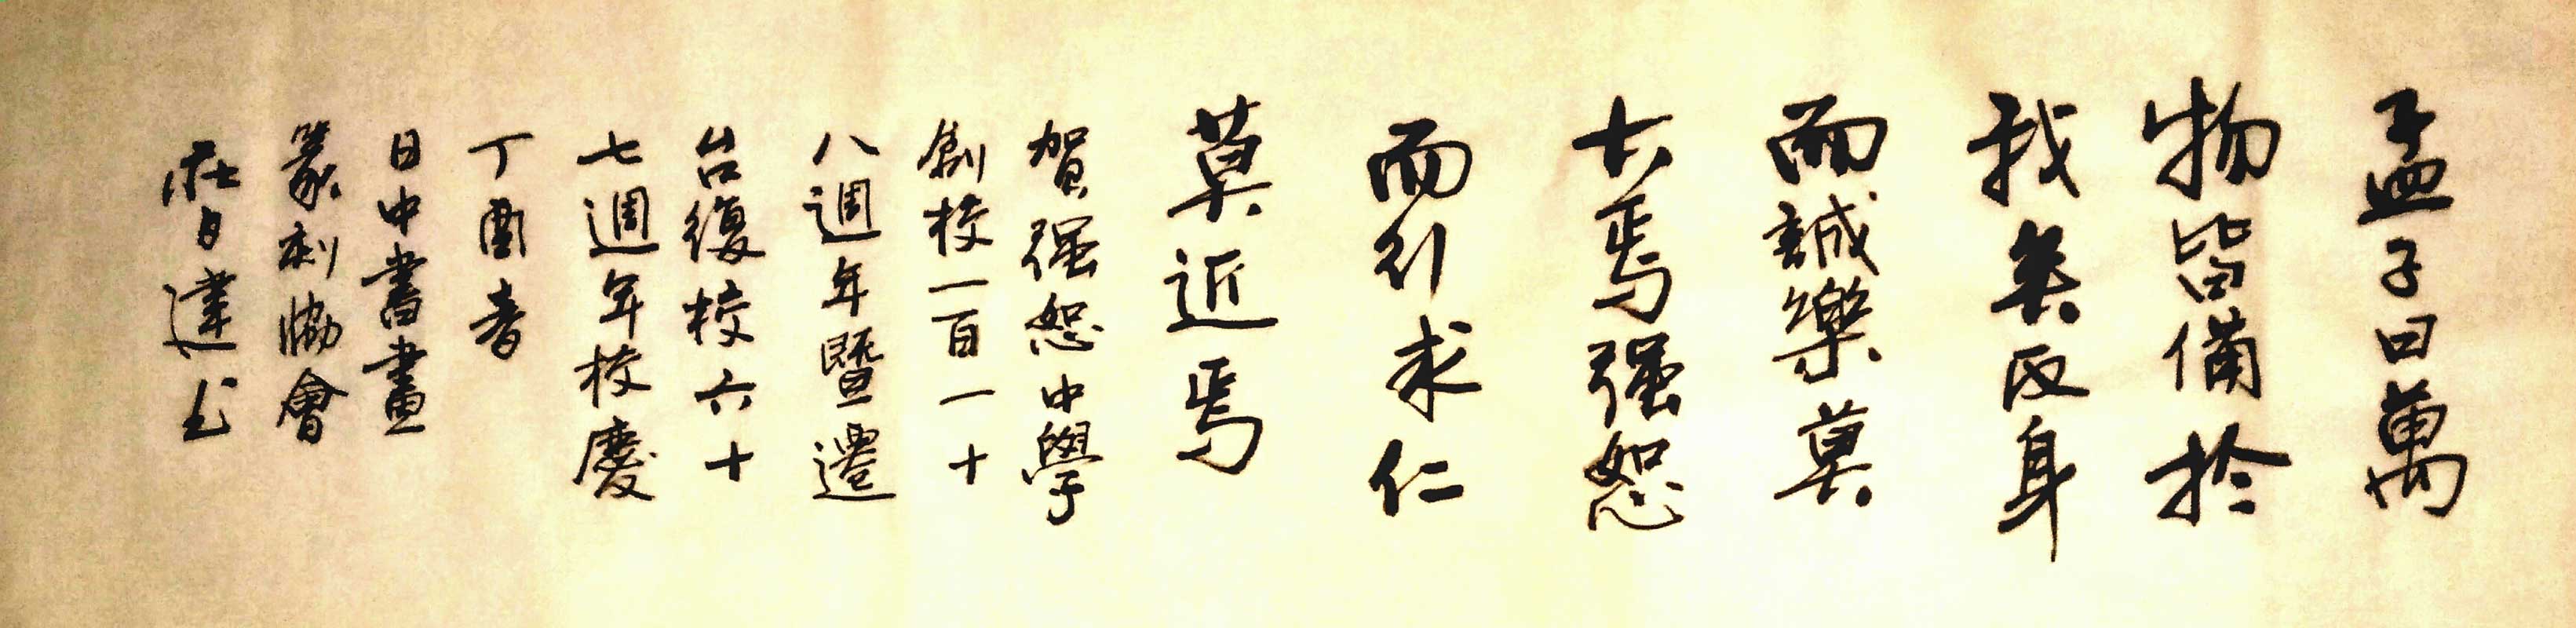 孟子曰萬
物皆備於
我矣反身
而誠樂莫
大焉强恕
而行求仁
莫近焉
賀强恕中學
創校一百一十
八週年暨遷
台復校六十
七週年校慶
丁酉春
日中書畫
篆刻協會